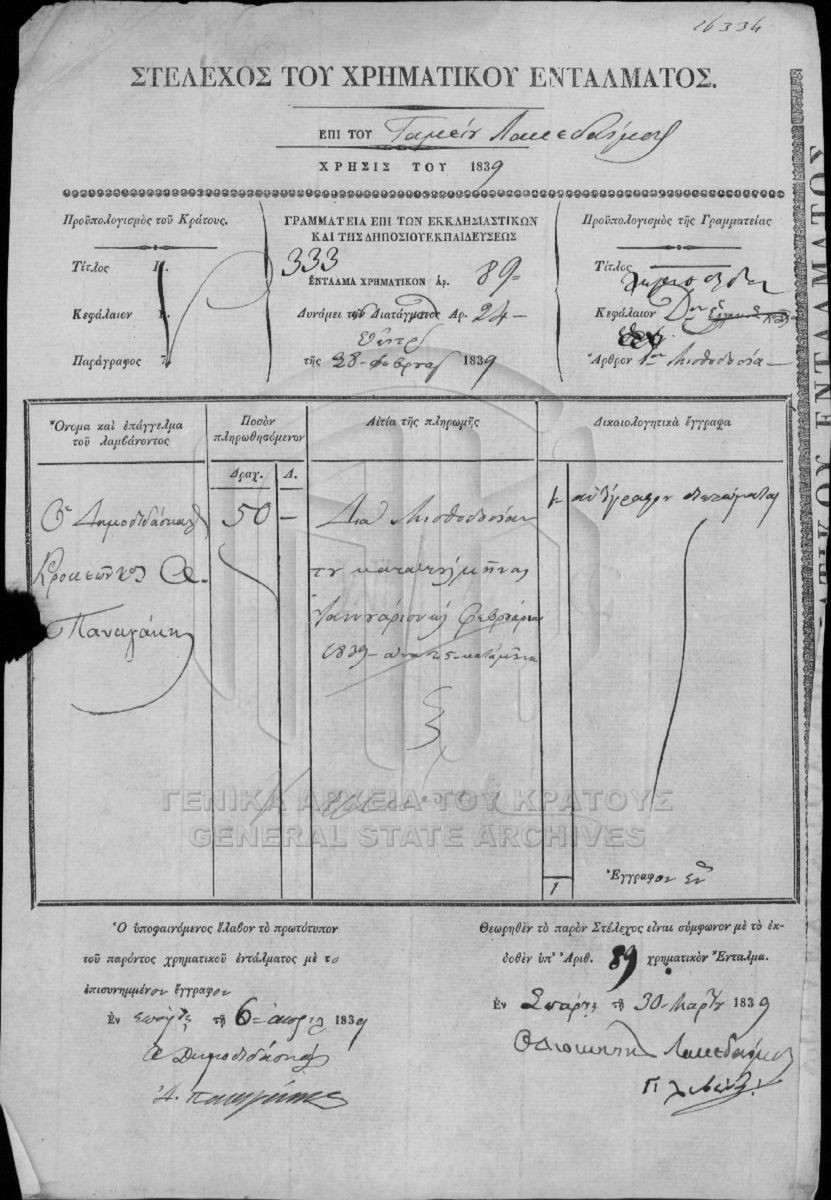 16334
ΣΤΕΛΕΧΟΣ ΤΟΥ ΧΡΗΜΑΤΙΚΟΥ ΕΝΤΑΛΜΑΤΟΣ.
ΕΠΙ ΤΟΥ Ταμείου Λακεδαίμονος
ΧΡΗΣΙΣ ΤΟΥ 1839
Προϋπολογισμὸς τοῦ Κράτους.
Τίτλος
Κεφάλαιον
Παράγραφος 7.
ΓΡΑΜΜΑΤΕΙΑ ΕΠΙ ΤΩΝ ΕΚΚΛΗΣΙΑΣΤΙΚΩΝ
ΚΑΙ ΤΗΣ ΔΗΜΟΣΙΟΥ ΕΚΠΑΙΔΕΥΣΕΩΣ
333
ΕΝΤΑΛΜΑ ΧΡΗΜΑΤΙΚΟΝ Αρ. 89
Δυνάμει τοῦ Διατάγματος Αρ. 24
τῆς 28 Φεβρουαρ 1839
Προϋπολογισμὸς τῆς Γραμματείας
Τίτλος
Κεφάλαιον
Ἄρθρον 1ον Μισθοδοσία
Ὄνομα καὶ ἐπάγγελμα
τοῦ λαμβάνοντος
Ποσὸν
πληρωθησόμενον
Δραχ. Λ.
Αἰτία τῆς πληρωμῆς
Δικαιολογητικὰ ἔγγραφα
Ὁ Δημοδιδάσκαλ
Κροκεῶν κος Α.
Παναγάκης
50 —
Διὰ Μισθοδοσίαν
του κατὰ τοὺς μῆνας
Ἰαννουάριον καὶ Φεβρουάριον
1839 ἀνὰ 25 κατὰ μῆνα
1
Ἔγγραφον ἓν
ΓΕΝΙΚΑ ΑΡΧΕΙΑ ΤΟΥ ΚΡΑΤΟΥΣ
GENERAL STATE ARCHIVES
Ὁ ὑποφαινόμενος ἔλαβον τὸ πρωτότυπον
τοῦ παρόντος χρηματικοῦ ἐντάλματος μὲ το
ἐπισυνημμένον ἔγγραφον
Ἐν Σπάρτῃ τῇ 6 1839
Ὁ Δημοδιδάσκαλ
Α. Παναγάκης
Θεωρηθὲν τὸ παρὸν Στέλεχος εἶναι σύμφωνον μὲ τὸ ἐκ-
δοθὲν ὑπ' Ἀριθ. 89 χρηματικὸν Ἔνταλμα.
Ἐν Σπάρτῃ τῇ 30 Μαρτίου 1839
Ὁ Διοικητὴς Λακεδαίμονος